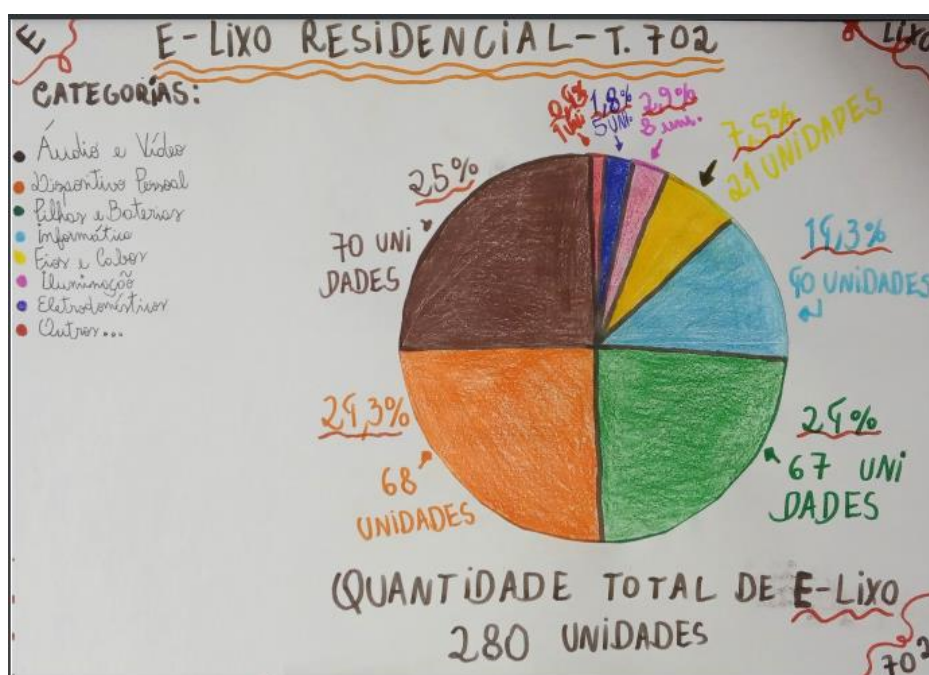 E
E-LiXO RESiDENCiAL-T. 702
LiXO
CATEGORiAS:
Áudio e Vídeo
Dispositivo Pessoal
Pilhas e Baterias
Informática
Fios e Cabos
Iluminação
Eletrodomésticos
Outros...
0,4%
1 UNi
1,8%
5 UNi.
2,9%
8 uni.
7,5%
21 UNiDADES
25%
70 UNi
DADES
14,3%
40 UNiDADES
24,3%
68
UNiDADES
24%
67 UNi
DADES
QUANTiDADE TOTAL DE E-LiXO
280 UNiDADES
702